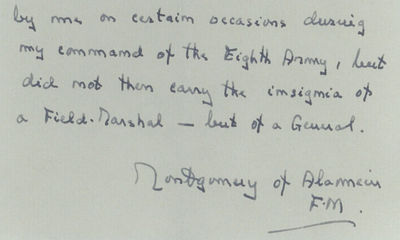 by me on certain occasions during
my command of the Eighth Army, but
did not then carry the insignia of
a Field-Marshal — but of a General.
Montgomery of Alamein
F.M.